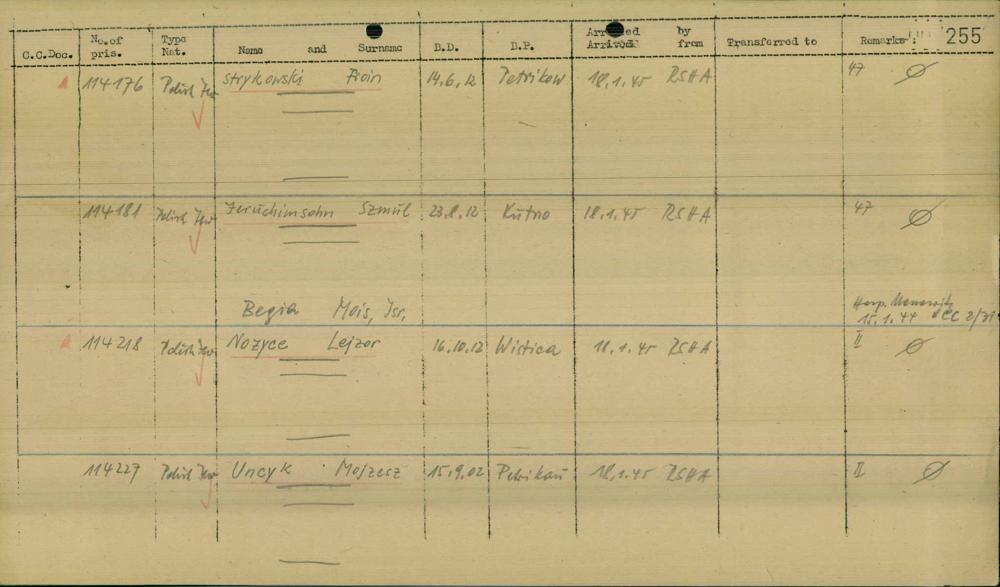 255
C.C.Doc. No.of pris. Type Nat. Name and Surname B.D. B.P. Arrived by from Transferred to Remarks
114176 Polish Jew Strykowski Froin 14.6.12 Petrikow 18.1.45 RSHA 47
114181 Polish Jew Jeruchimsohn Szmul 23.8.12 Kutno 18.1.45 RSHA 47
Begia Mois, Isr. Hosp. Monowitz
15.1.44 OCC 2/21
114218 Polish Jew Nozyce Lejzor 16.10.12 Wislica 18.1.45 RSHA II
114227 Polish Jew Uncyk Mojzesz 15.9.02 Petrikau 18.1.45 RSHA II